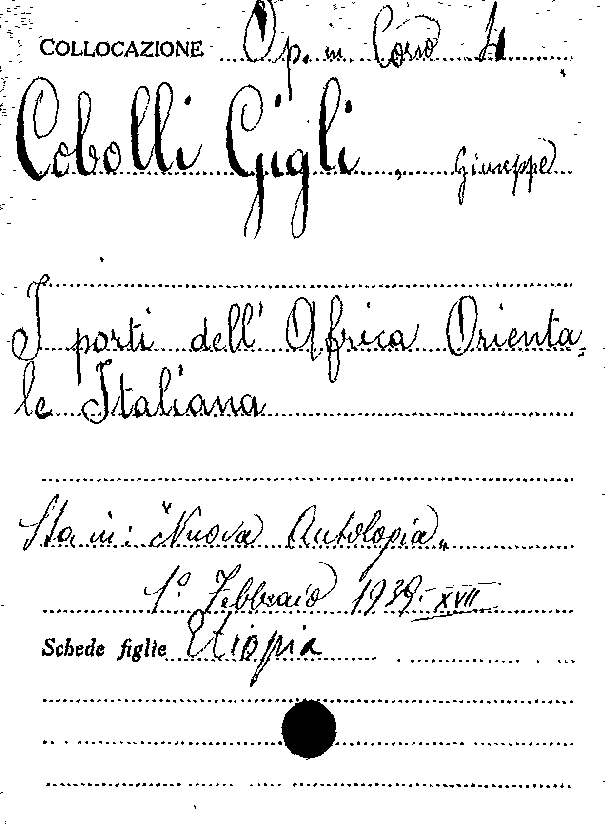 COLLOCAZIONE Op. in Corso 4
Cobolli Gigli, Giuseppe
I porti dell' Africa Orienta=
le Italiana
Sta in: "Nuova Antologia"
1° Febbraio 1939-XVII
Schede figlie Etiopia